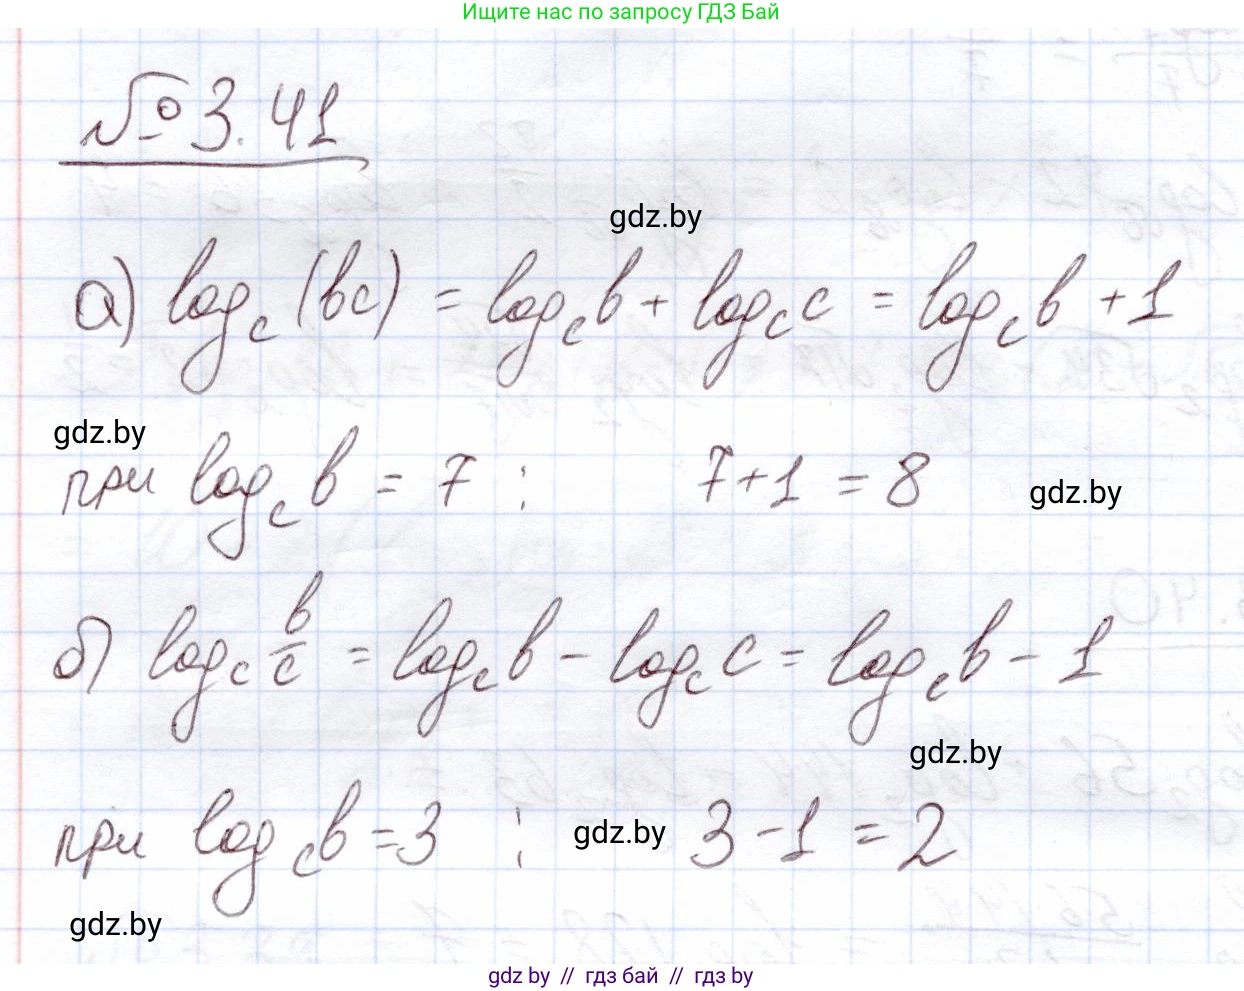 Ищите нас по запросу ГДЗ Бай
№ 3.41
gdz.by
а) log_c (bc) = log_c b + log_c c = log_c b + 1
gdz.by
при log_c b = 7 ; 7+1 = 8
gdz.by
б) log_c b/c = log_c b - log_c c = log_c b - 1
gdz.by
при log_c b = 3 ; gdz.by 3 - 1 = 2
gdz.by
gdz by // гдз бай // гдз by